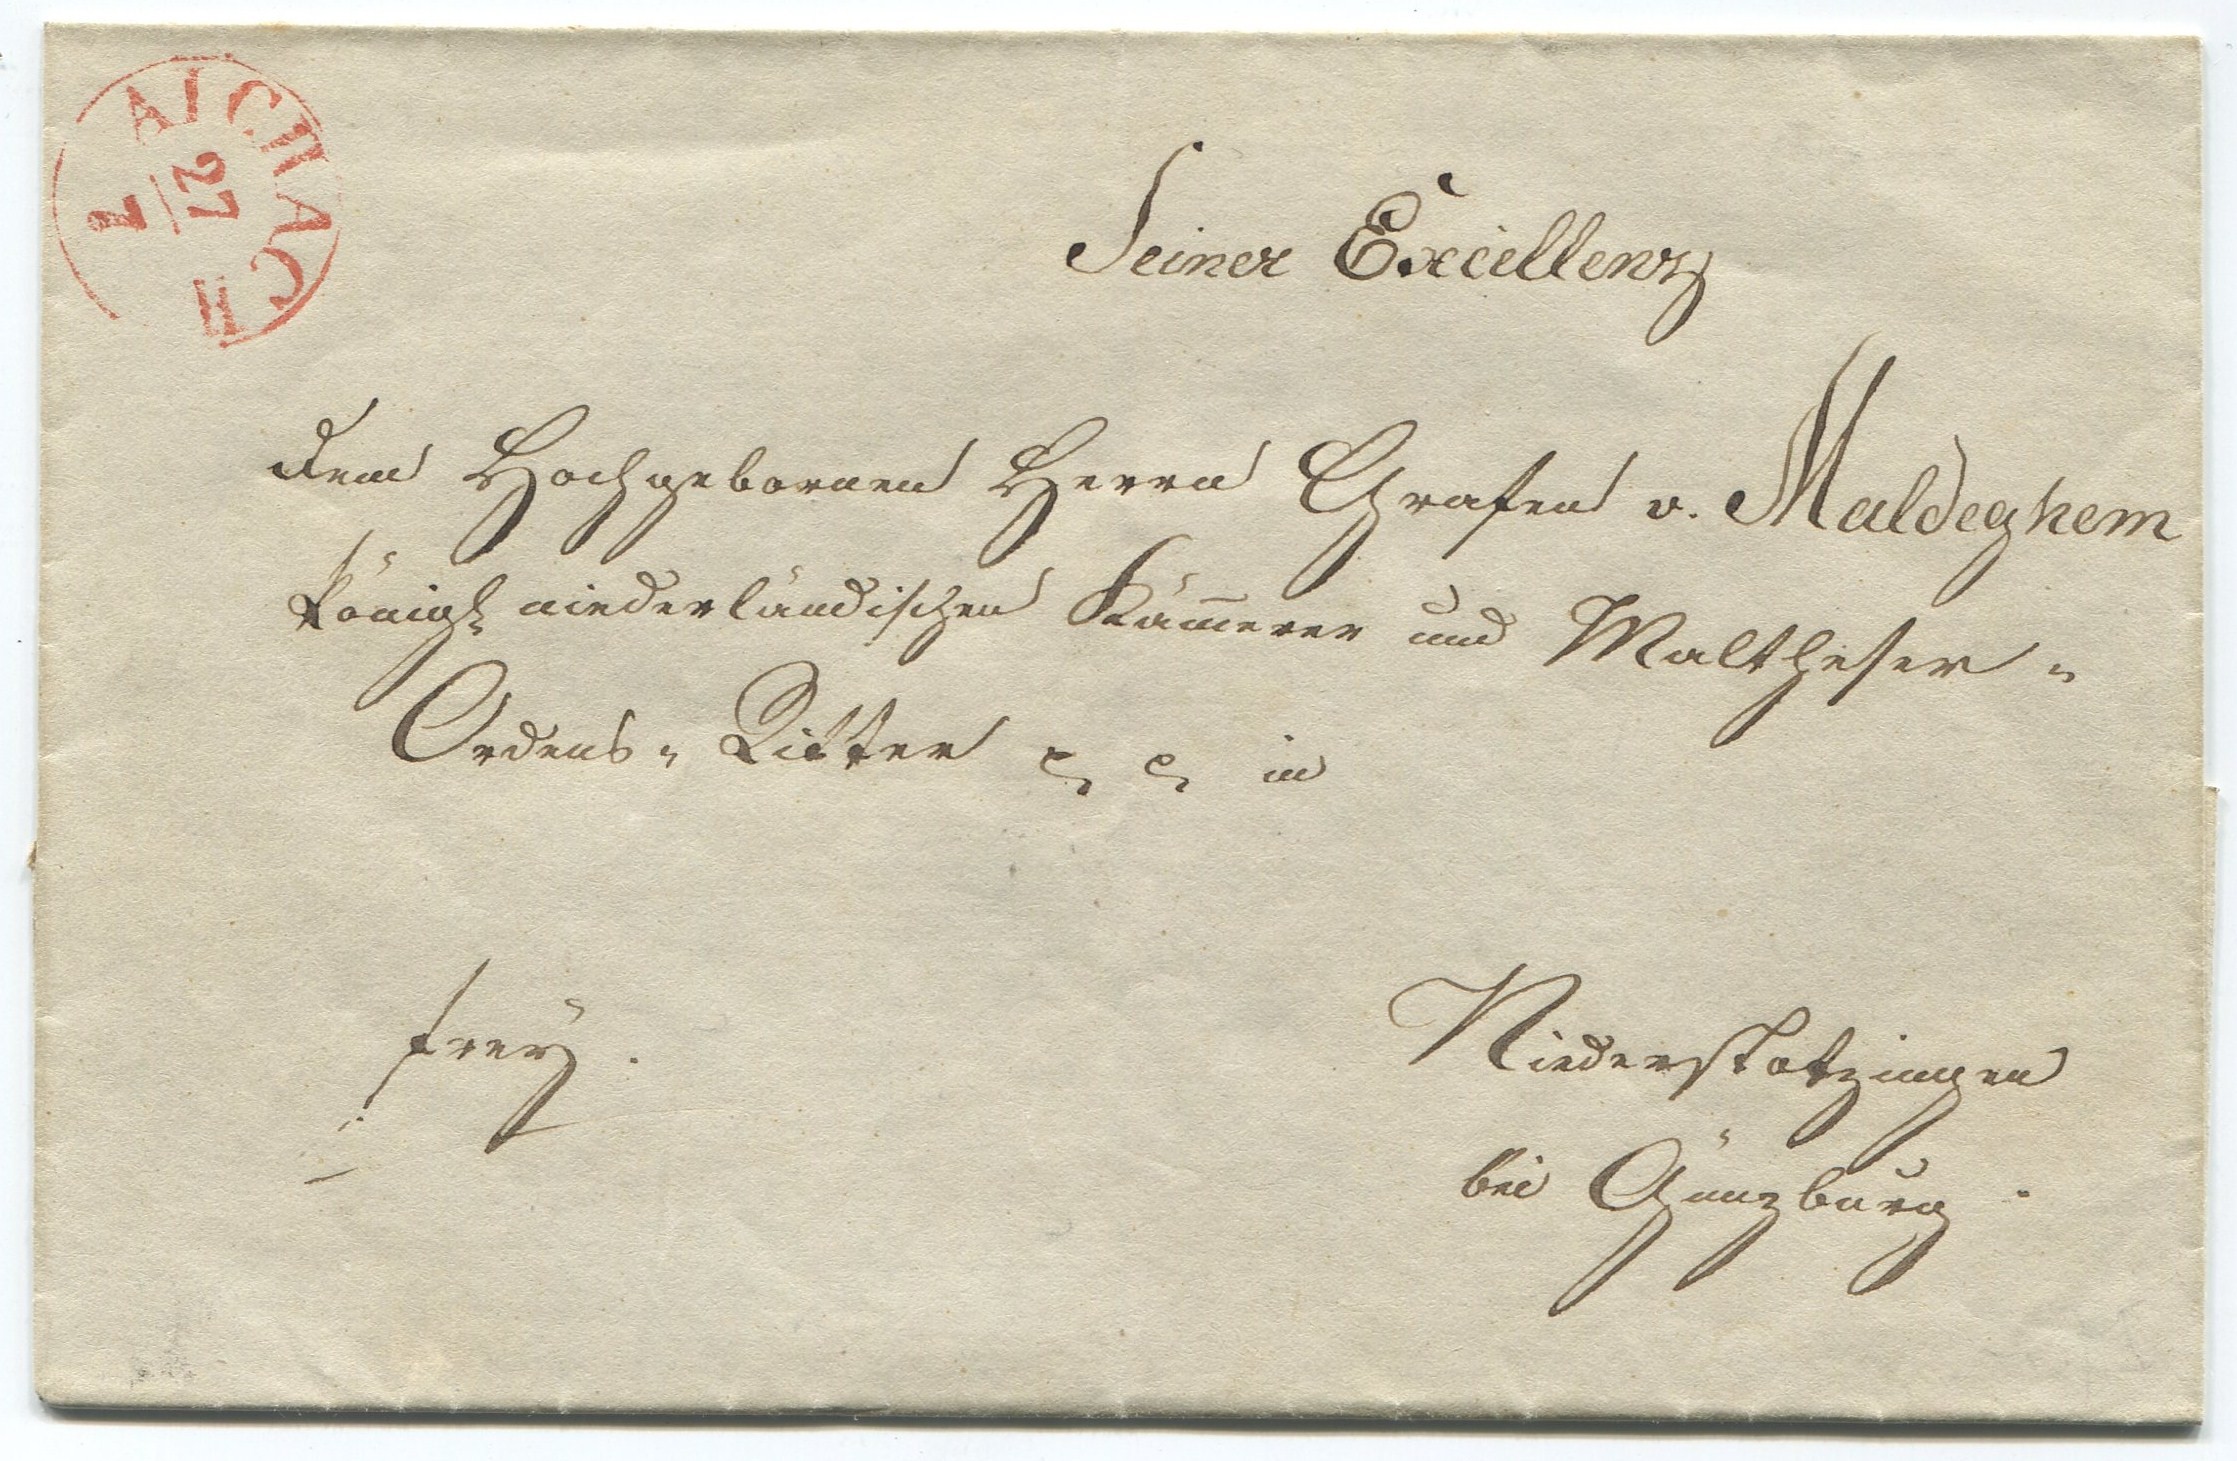 AICHACH
27
7
Seiner Excellenz
dem Hochgebornen Herrn Grafen v. Maldeghem
königl. niederländischen Kam̄erer und Maltheser-
Ordens-Ritter &c. &c. in
frey.
Niederstotzingen
bei Günzburg.